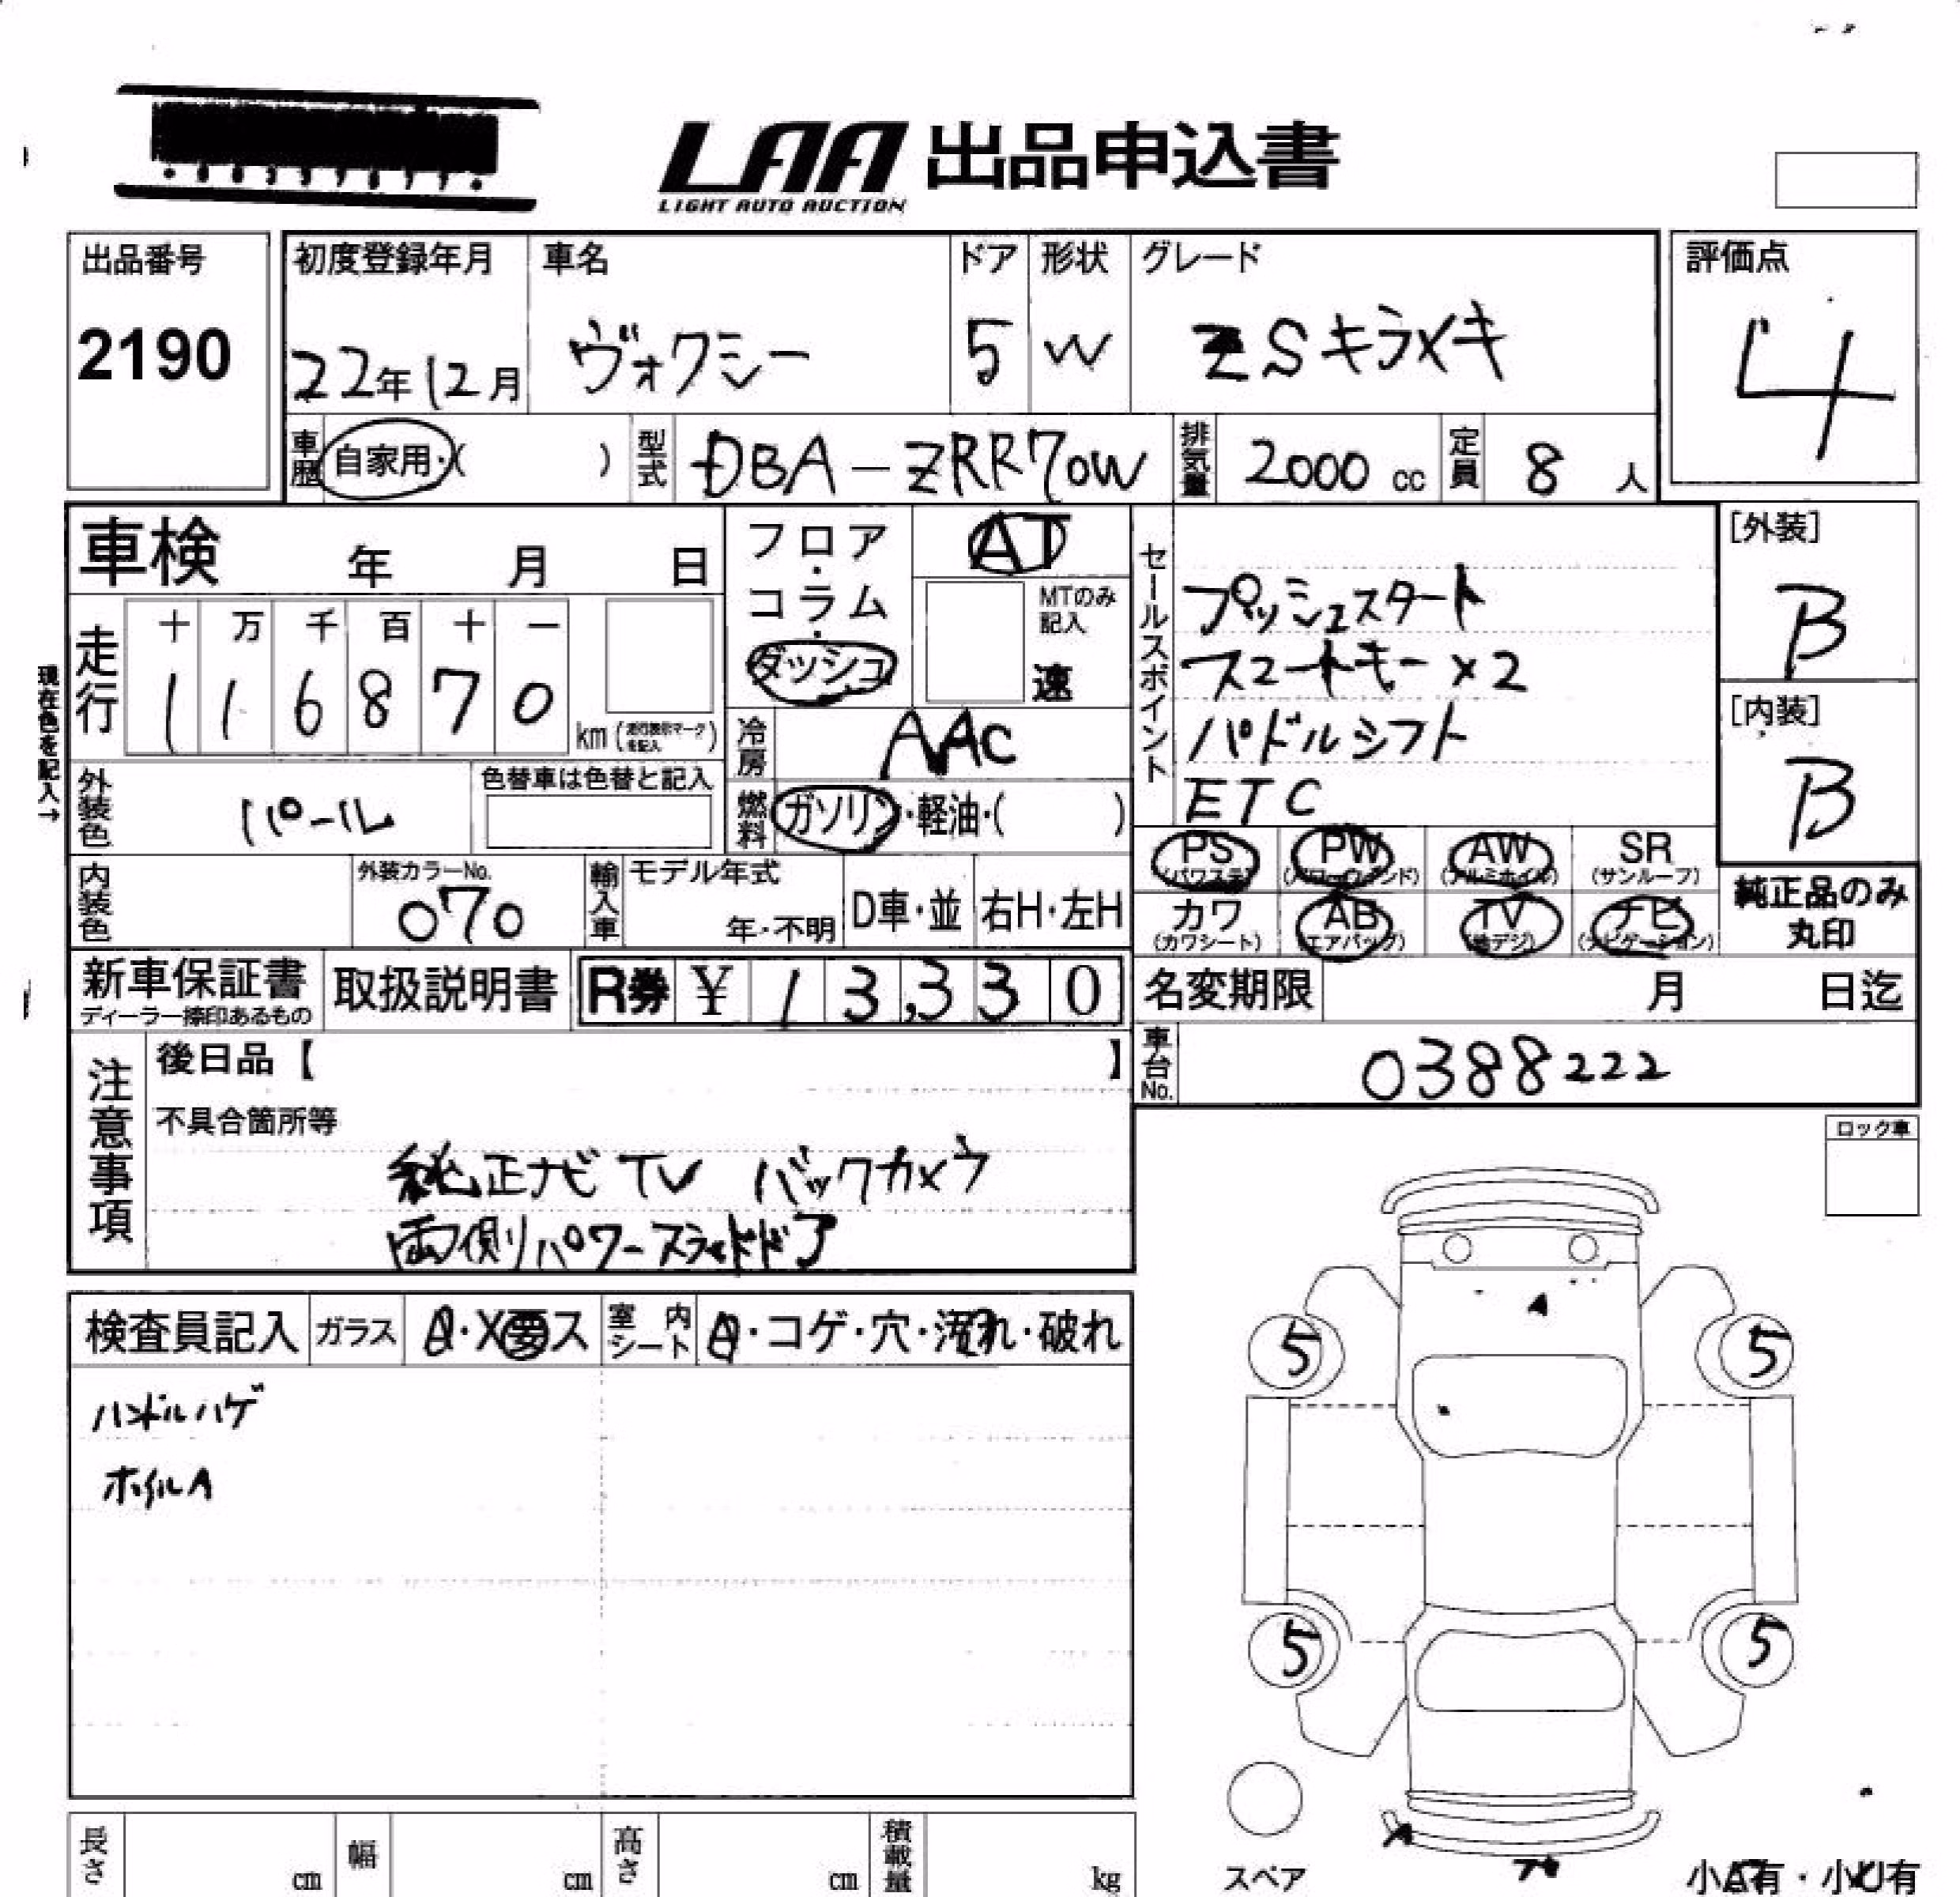 LAA 出品申込書
LIGHT AUTO AUCTION
出品番号 初度登録年月 車名 ドア 形状 グレード 評価点
2190 22年12月 ヴォクシー 5 W ZSキラメキ 4
車歴 自家用・( ) 型式 DBA-ZRR70W 排気量 2000 cc 定員 8 人
車検 年 月 日 フロア・コラム・ダッシュ AT セールスポイント [外装]
MTのみ記入 速 B
走行 十 万 千 百 十 一
1 1 6 8 7 0 km (走行表示マークを記入)
プッシュスタート
スマートキー×2
パドルシフト
ETC
[内装]
B
現在色を記入→
冷房 AAC
外装色 パール 色替車は色替と記入 燃料 ガソリン・軽油・( )
PS PW AW SR
(パワステ) (パワーウィンド) (アルミホイル) (サンルーフ)
カワ AB TV ナビ
(カワシート) (エアバッグ) (地デジ) (ナビゲーション)
純正品のみ
丸印
内装色 外装カラーNo. 070 輸入車 モデル年式 年・不明 D車・並 右H・左H
新車保証書 取扱説明書 R券 ¥ 13,330 名変期限 月 日迄
ディーラー捺印あるもの
車台No. 0388222
注意事項 後日品【 】
不具合箇所等
純正ナビ TV バックカメラ
両側パワースライドドア
ロック車
検査員記入 ガラス A・X要ス 室内シート ・コゲ・穴・汚れ・破れ
ハンドルハゲ
ホイルA
A
5 5
5 5
A
スペア 小A有・小U有
長さ cm 幅 cm 高さ cm 積載量 kg